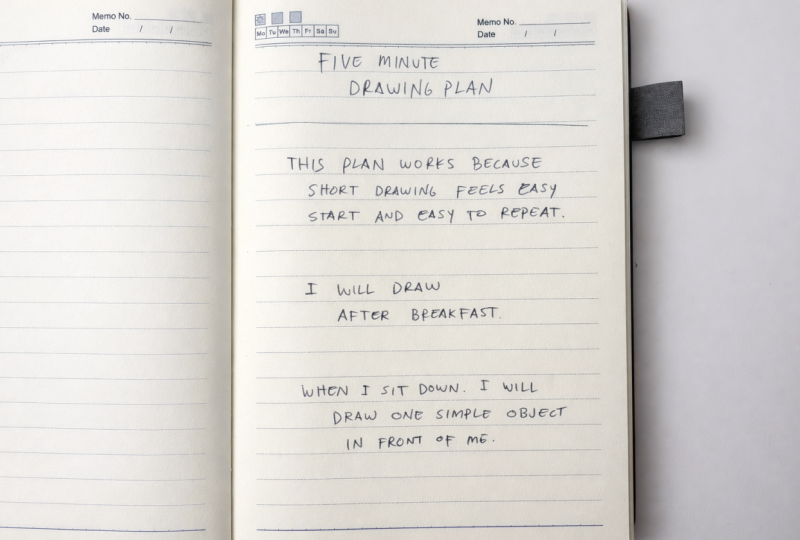 Memo No.
Date / /
Mo Tu We Th Fr Sa Su
Memo No.
Date / /
FIVE MINUTE
DRAWING PLAN
THIS PLAN WORKS BECAUSE
SHORT DRAWING FEELS EASY
START AND EASY TO REPEAT.
I WILL DRAW
AFTER BREAKFAST.
WHEN I SIT DOWN. I WILL
DRAW ONE SIMPLE OBJECT
IN FRONT OF ME.